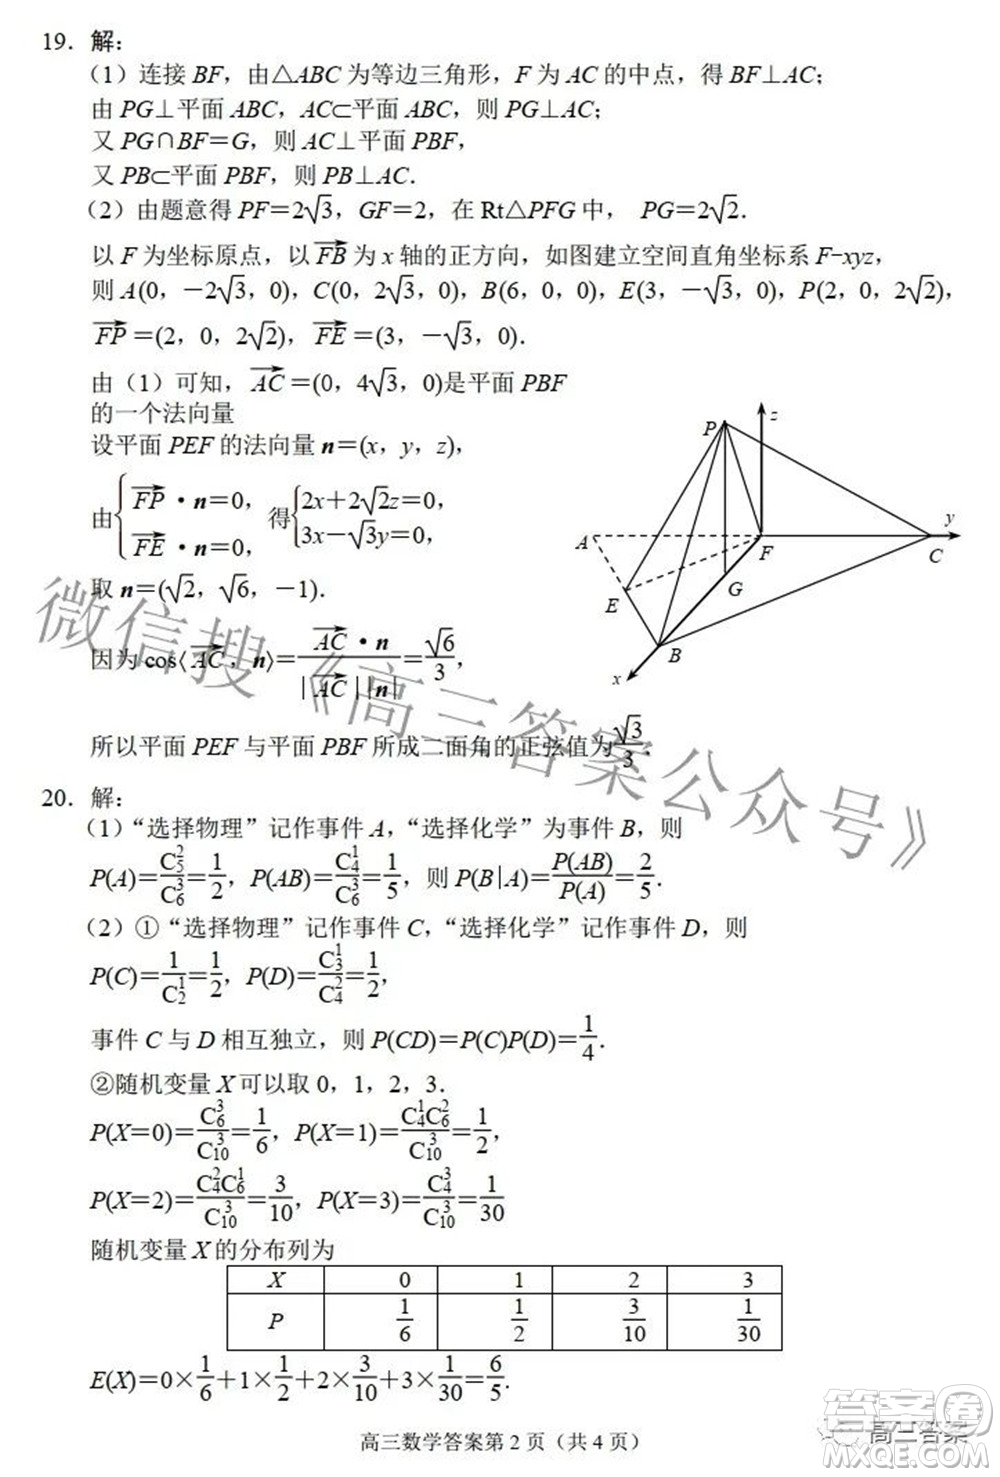 19．解：
（1）连接 BF，由△ABC 为等边三角形，F 为 AC 的中点，得 BF⊥AC；
由 PG⊥平面 ABC，AC⊂平面 ABC，则 PG⊥AC；
又 PG∩BF＝G，则 AC⊥平面 PBF，
又 PB⊂平面 PBF，则 PB⊥AC．
（2）由题意得 PF＝2√3，GF＝2，在 Rt△PFG 中， PG＝2√2．
以 F 为坐标原点，以 FB→ 为 x 轴的正方向，如图建立空间直角坐标系 F-xyz，
则 A(0，－2√3，0)，C(0，2√3，0)，B(6，0，0)，E(3，－√3，0)，P(2，0，2√2)，
FP→＝(2，0，2√2)，FE→＝(3，－√3，0)．
由（1）可知，AC→＝(0，4√3，0)是平面 PBF
的一个法向量
设平面 PEF 的法向量 n＝(x，y，z)，
由{FP→·n＝0，FE→·n＝0，得{2x＋2√2z＝0，3x－√3y＝0，
取 n＝(√2，√6，－1)．
因为 cos⟨AC→，n⟩＝AC→·n/|AC→||n|＝√6/3，
所以平面 PEF 与平面 PBF 所成二面角的正弦值为√3/3．
P
z
A
F
y
C
E
G
B
x
20．解：
（1）“选择物理”记作事件 A，“选择化学”为事件 B，则
P(A)＝C₅²/C₆³＝1/2，P(AB)＝C₄¹/C₆³＝1/5，则 P(B|A)＝P(AB)/P(A)＝2/5．
（2）①“选择物理”记作事件 C，“选择化学”记作事件 D，则
P(C)＝1/C₂¹＝1/2，P(D)＝C₃¹/C₄²＝1/2，
事件 C 与 D 相互独立，则 P(CD)＝P(C)P(D)＝1/4．
②随机变量 X 可以取 0，1，2，3．
P(X＝0)＝C₆³/C₁₀³＝1/6，P(X＝1)＝C₄¹C₆²/C₁₀³＝1/2，
P(X＝2)＝C₄²C₆¹/C₁₀³＝3/10，P(X＝3)＝C₄³/C₁₀³＝1/30
随机变量 X 的分布列为
X 0 1 2 3
P 1/6 1/2 3/10 1/30
E(X)＝0×1/6＋1×1/2＋2×3/10＋3×1/30＝6/5．
高三数学答案第 2 页（共 4 页）
微信搜《高三答案公众号》
高三答案
答案圈
MXQE.COM